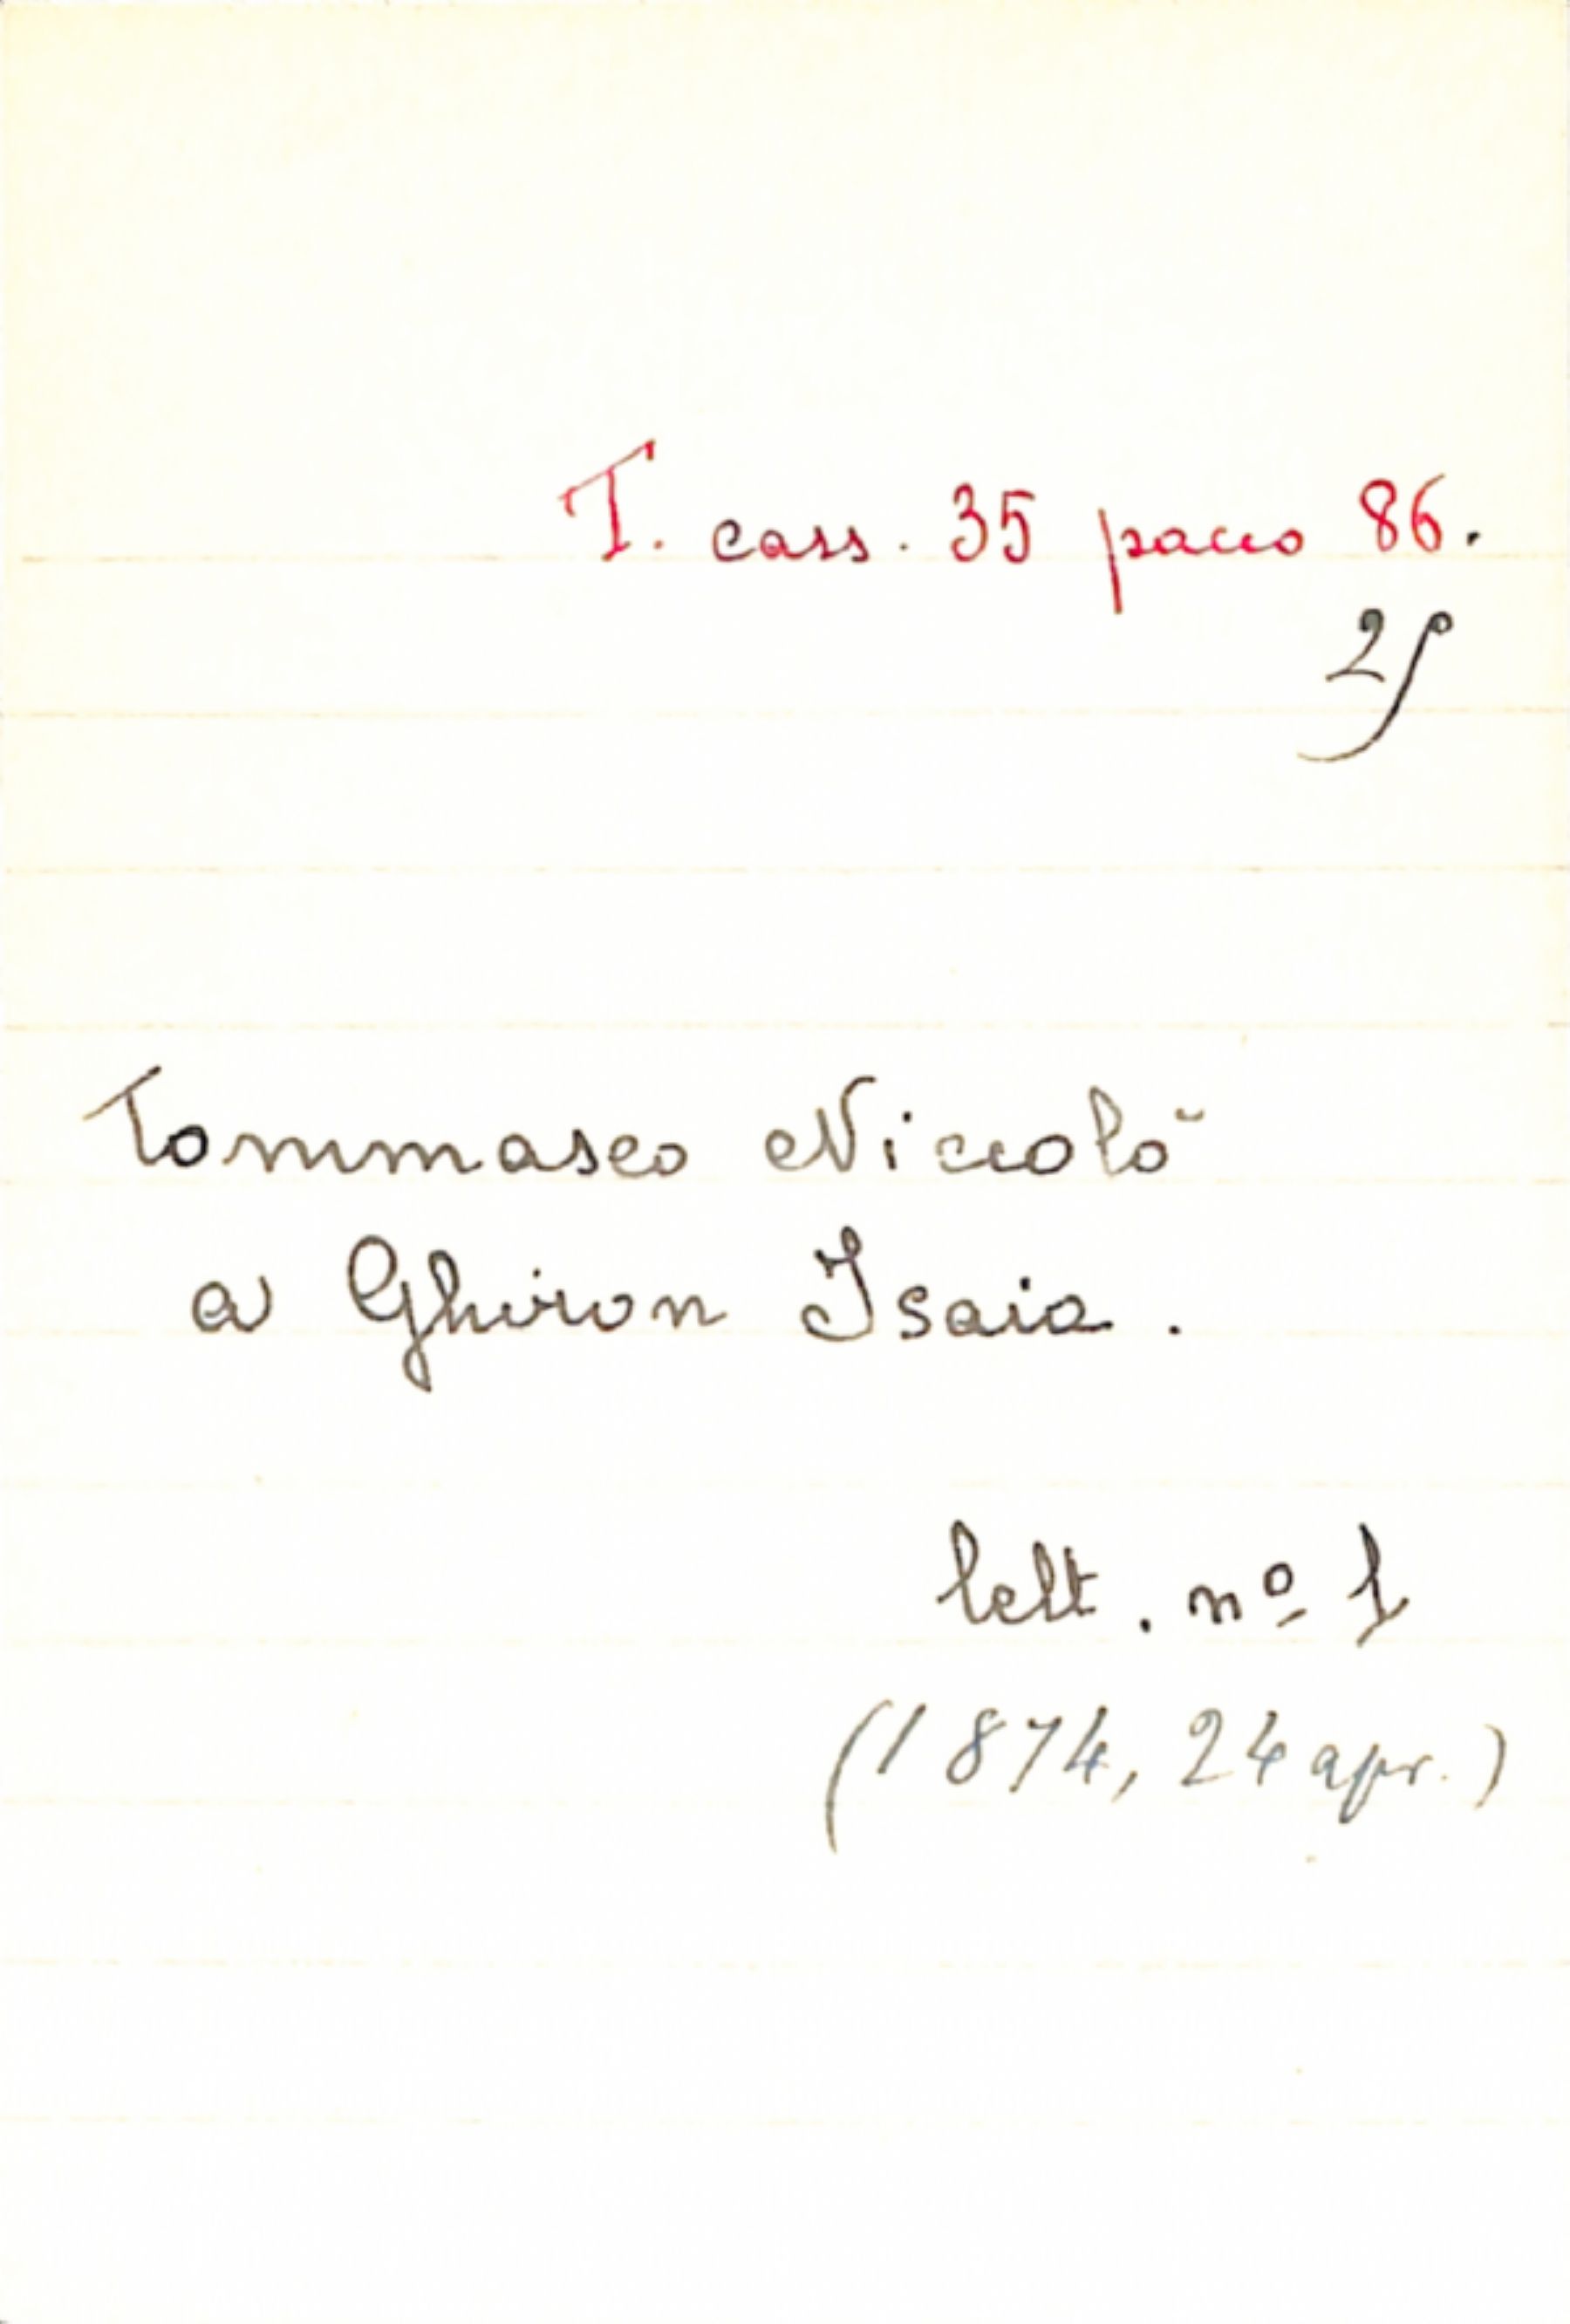 T. cass. 35 pacco 86.
2
Tommaseo Niccolò
a Ghiron Isaia.
lett. nº 1
(1874, 24 apr.)